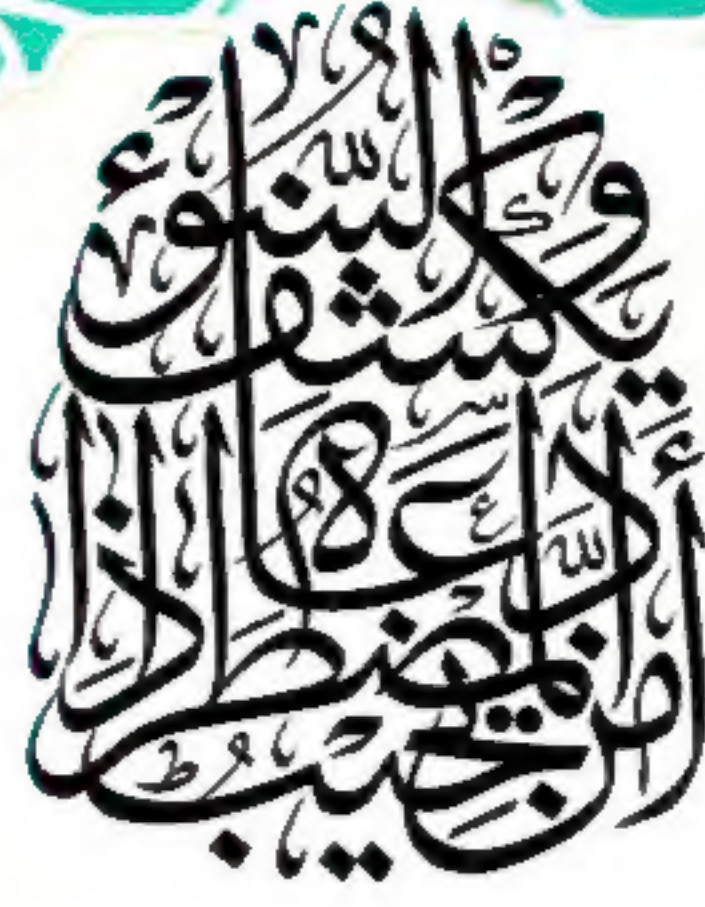 أَمَّنْ يُجِيبُ الْمُضْطَرَّ إِذَا
دَعَاهُ
وَيَكْشِفُ
السُّوءَ